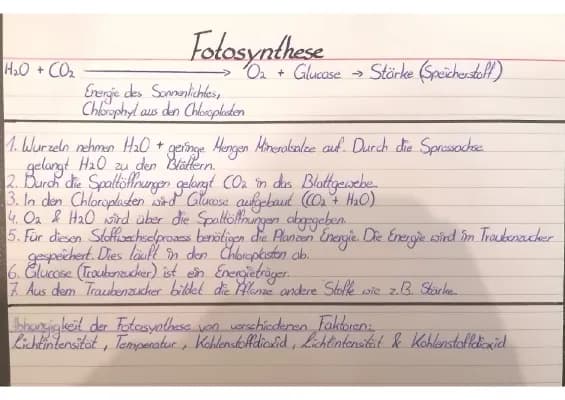 Fotosynthese
H₂O + CO₂ → O₂ + Glucose → Stärke (Speicherstoff)
Energie des Sonnenlichtes,
Chlorophyl aus den Chloroplasten
1. Wurzeln nehmen H₂O + geringe Mengen Mineralsalze auf. Durch die Sprossachse
gelangt H₂O zu den Blättern.
2. Durch die Spaltöffnungen gelangt CO₂ in das Blattgewebe
3. In den Chloroplasten wird Glucose aufgebaut (CO₂ + H₂O)
4. O₂ & H₂O wird über die Spaltöffnungen abgegeben.
5. Für diesen Stoffwechselprozess benötigen die Planzen Energie. Die Energie wird im Traubenzucker
gespeichert. Dies läuft in den Chloroplasten ab.
6. Glucose (Traubenzucker) ist ein Energieträger.
7. Aus dem Traubenzucker bildet die Pflanze andere Stoffe wie z.B. Stärke
Abhängigkeit der Fotosynthese von verschiedenen Faktoren:
Lichtintensität, Temperatur, Kohlenstoffdioxid, Lichtintensität & Kohlenstoffdioxid